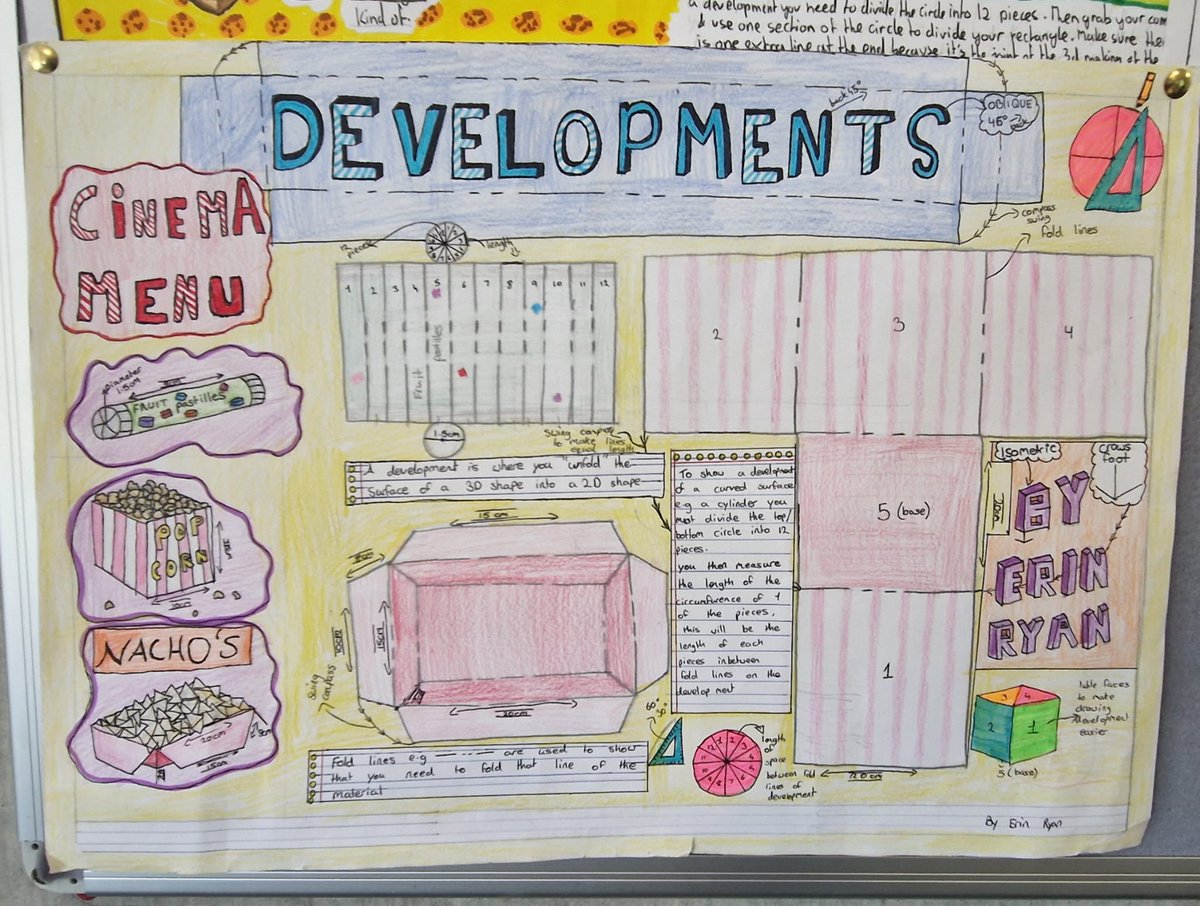 Kind of
a development you need to divide the circle into 12 pieces. Then grab your com
& use one section of the circle to divide your rectangle. Make sure the
is one extra line at the end because it's the joint of the 3d making of the
DEVELOPMENTS
back 45°
OBLIQUE
45° back
compass
swing
fold lines
CINEMA
MENU
12
pieces
length
1 2 3 4 5 6 7 8 9 10 11 12
Fruit
pastilles
1.5cm
swing compass
to make lines
equal length
2
3
4
5 (base)
1
20cm
diameter
1.5cm
FRUIT Pastilles
A development is where you "unfold" the
surface of a 3D shape into a 2D shape
POP
CORN
NACHO'S
20cm
15cm
15cm
10cm
15cm
20cm
swing
compass
To show a development
of a curved surface
e.g a cylinder you
must divide the top/
bottom circle into 12
pieces.
you then measure
the length of the
circumfurence of 1
of the pieces.
this will be the
length of each
pieces inbetween
fold lines on the
development
Isometric
crows
foot
BY
ERIN
RYAN
3 4
2 1
5 (base)
lable faces
to make
drawing
development
easier
60°
30°
length
of
space
between fold
lines of
development
Fold lines e.g are used to show
that you need to fold that line of the
material
By Erin Ryan